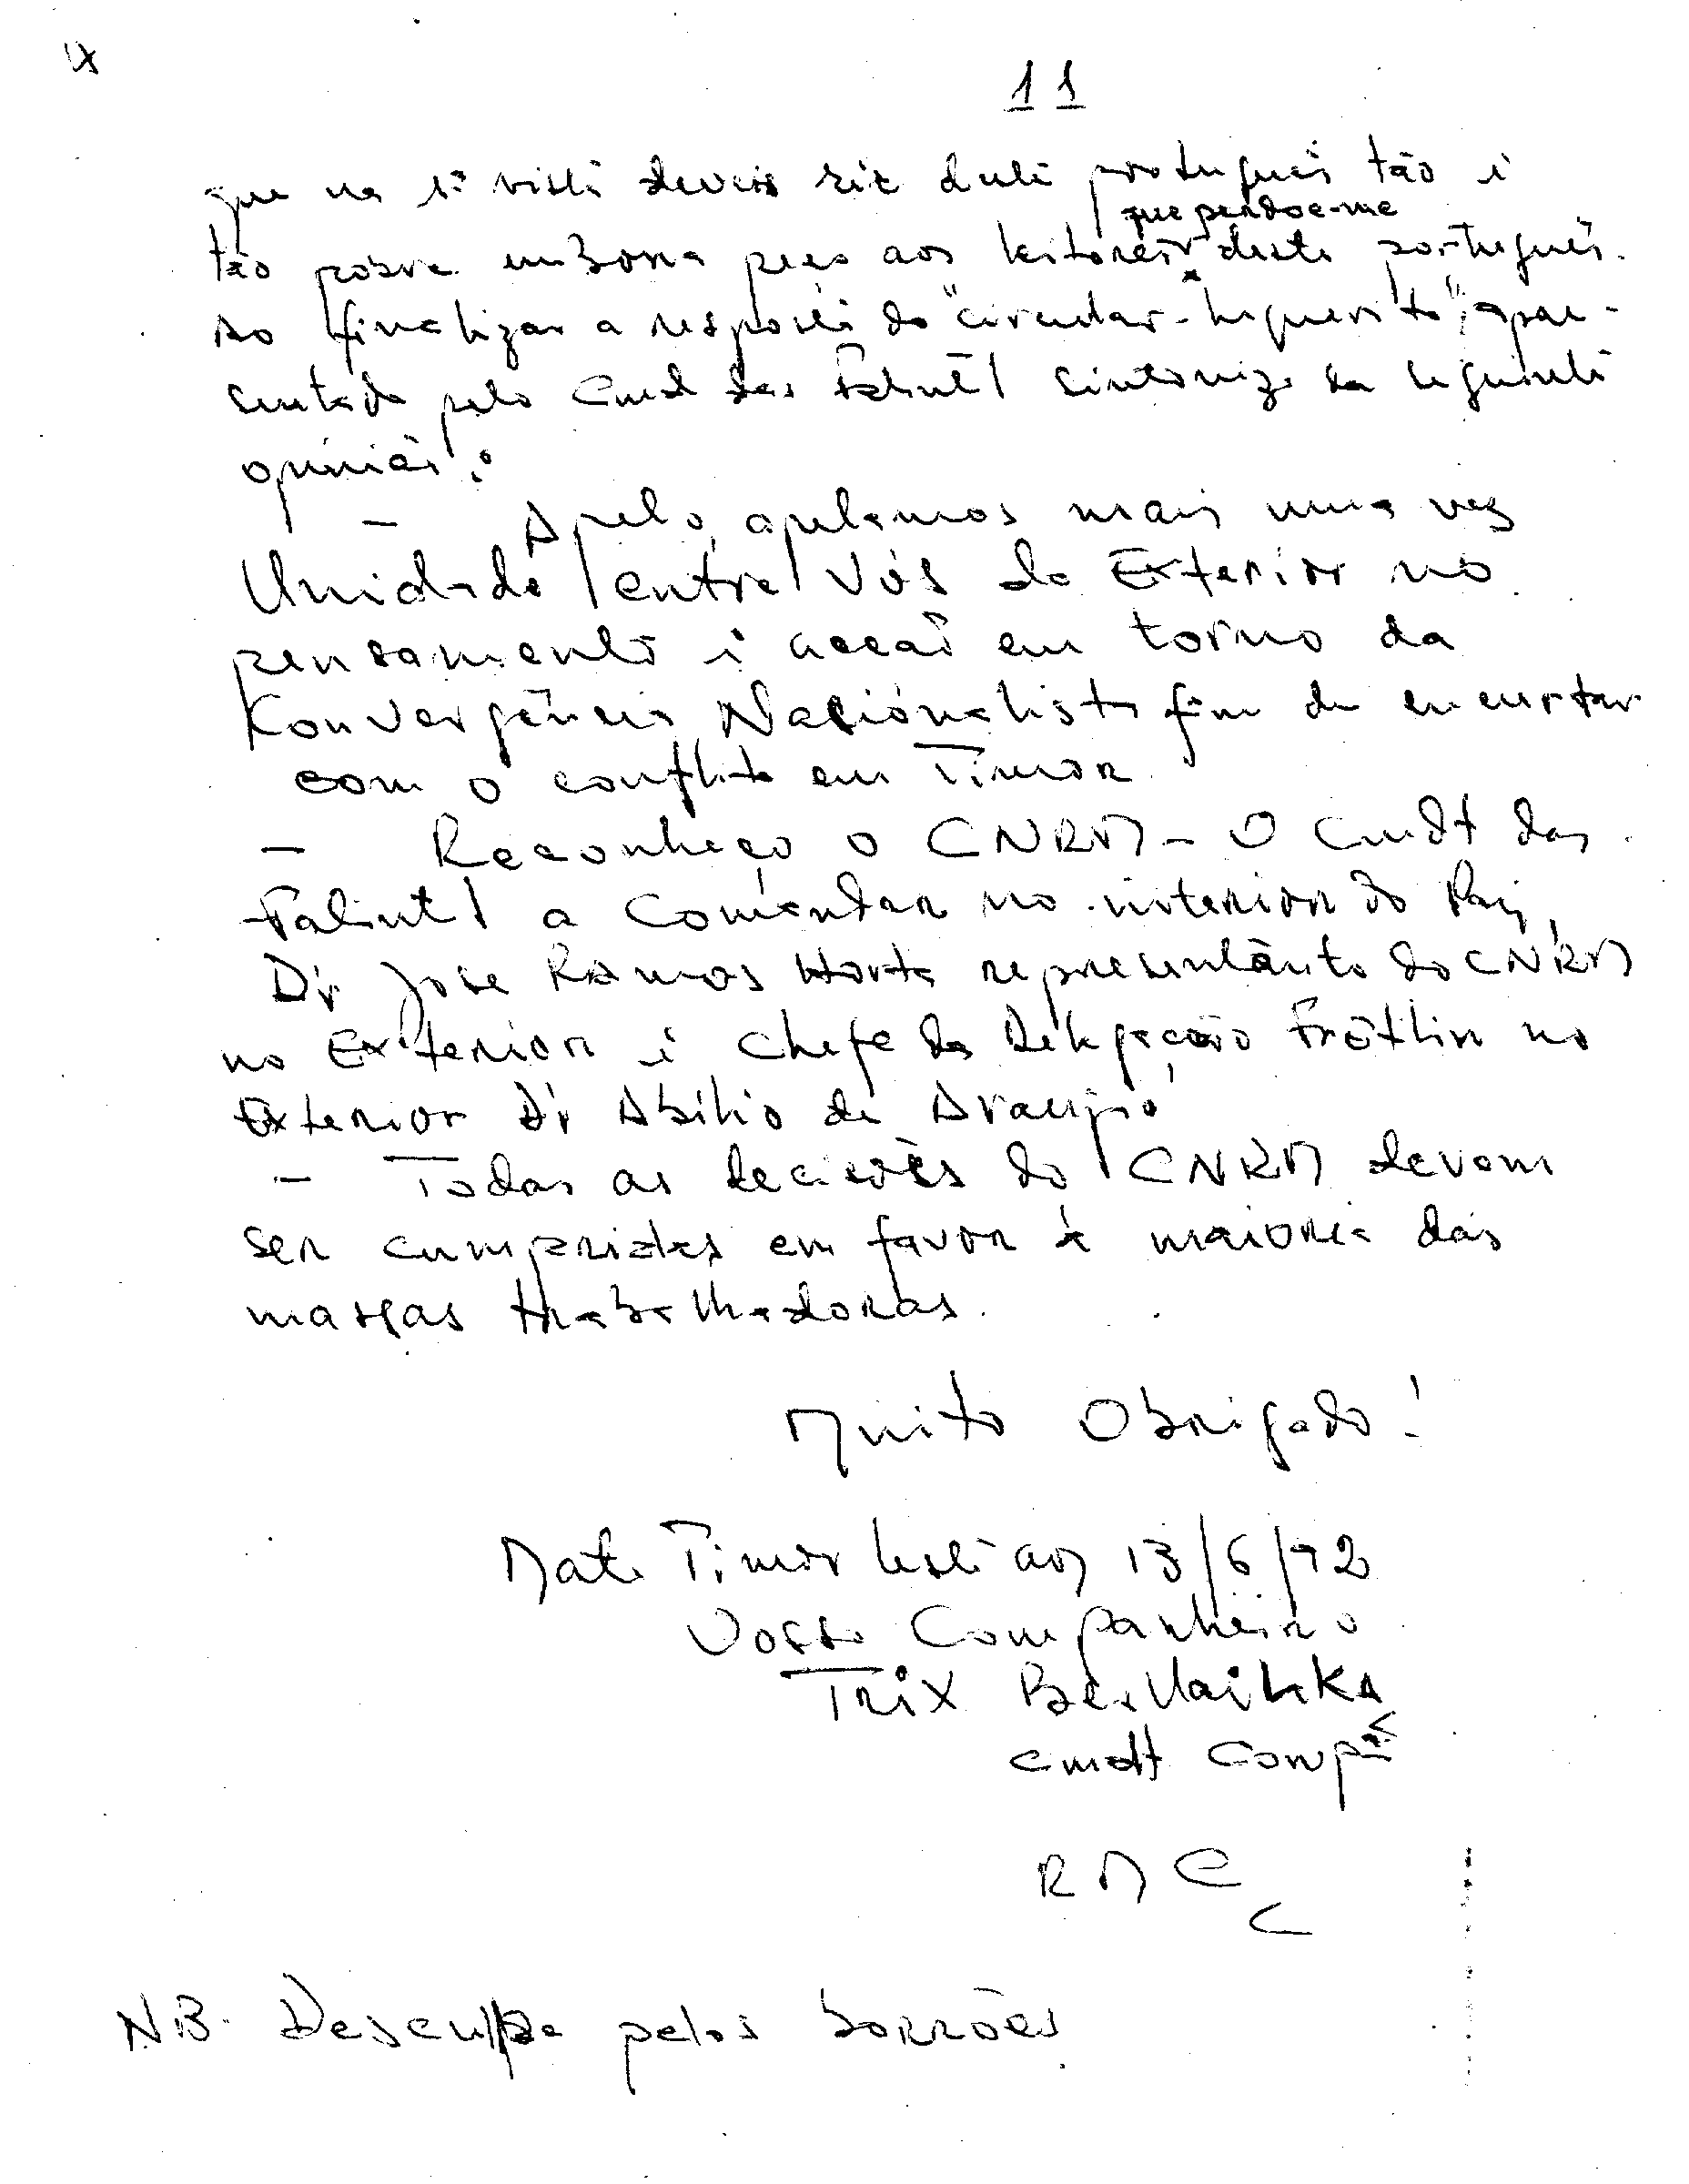 11
que na 1ª vista deveis rir deste português tão e
que perdoe-me
tão pobre embora peço aos leitores deste português.
Ao finalizar a resposta do "circular-inquerito", apre-
sentado pelo Cmdt das Falintil sintonizo da seguinte
opinião:
- Apelo, apelamos mais uma vez
Unidade entre Vós do Exterior no
pensamento e acção em torno da
Konvergência Nacionalista fim de encurtar
com o conflito em Timor
- Reconheço o CNRM - O Cmdt das
Falintil a Comandar no interior do Pais,
Dr Jose Ramos Horta representante do CNRM
no Exterior e Chefe da Delegação Fretilin no
Exterior Dr Abilio de Araujo
- Todas as decisões do CNRM devem
ser cumpridas em favor à maioria das
massas trabalhadoras.
Muito Obrigado!
Timor Leste aos 13/6/92
Vosso Companheiro
Trix
Cmdt Compª
R M C
NB. Desculpe pelos borrões